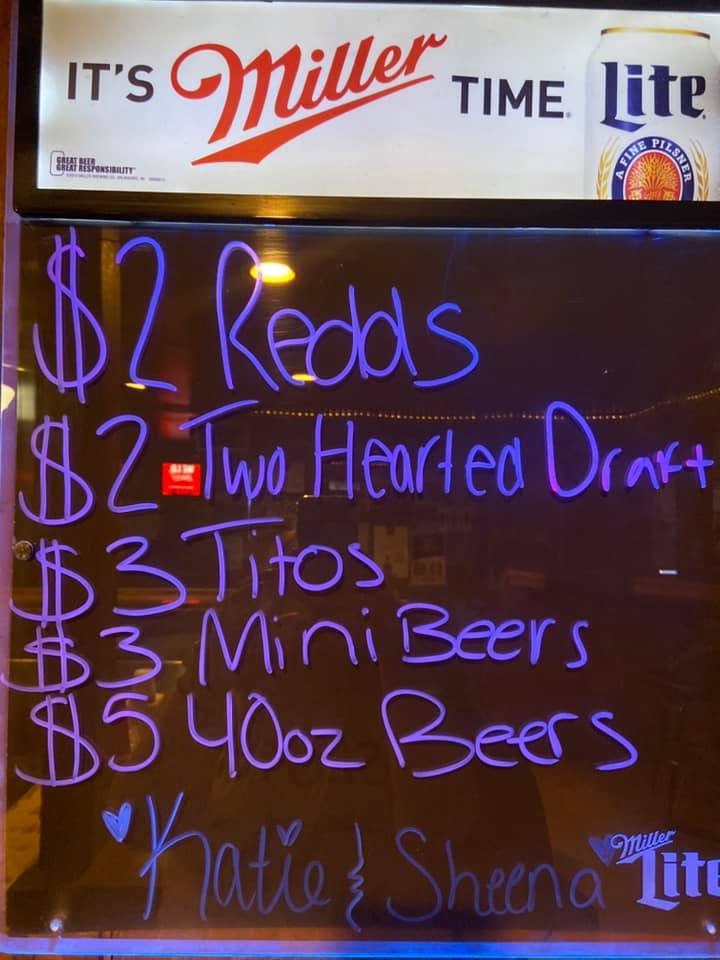 IT'S Miller TIME. Lite
A FINE PILSNER
GREAT BEER
GREAT RESPONSIBILITY
$2 Redds
$2 Two Hearted Draft
$3 Titos
$3 Mini Beers
$5 40oz Beers
Katie & Sheena
Miller
Lite